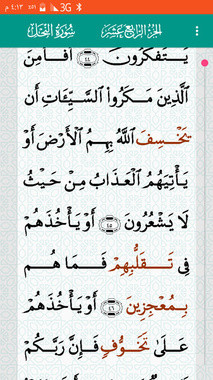 ٤:١٣ م 3G
الجزء الرابع عشر سورة النحل
يَتَفَكَّرُونَ ٤٤ أَفَأَمِنَ
الَّذِينَ مَكَرُوا السَّيِّئَاتِ أَن
يَخْسِفَ اللَّهُ بِهِمُ الْأَرْضَ أَوْ
يَأْتِيَهُمُ الْعَذَابُ مِنْ حَيْثُ
لَا يَشْعُرُونَ ٤٥ أَوْ يَأْخُذَهُمْ
فِي تَقَلُّبِهِمْ فَمَا هُم
بِمُعْجِزِينَ ٤٦ أَوْ يَأْخُذَهُمْ
عَلَىٰ تَخَوُّفٍ فَإِنَّ رَبَّكُمْ